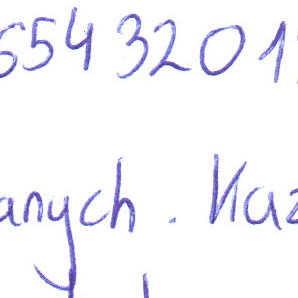 554 320 1
anych. Kaz